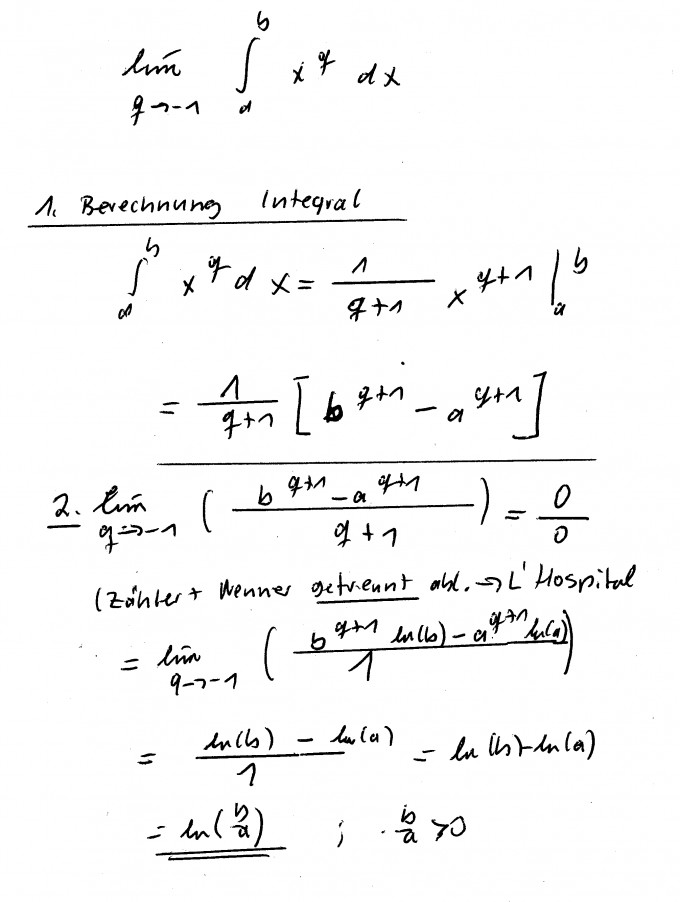 lim ∫_a^b x^q dx
q→-1
1. Berechnung Integral
∫_a^b x^q dx = 1/(q+1) x^(q+1) |_a^b
= 1/(q+1) [b^(q+1) - a^(q+1)]
2. lim_(q→-1) ( (b^(q+1) - a^(q+1))/(q+1) ) = 0/0
(Zähler + Nenner getrennt abl. → L'Hospital
= lim_(q→-1) ( (b^(q+1) ln(b) - a^(q+1) ln(a))/1 )
= (ln(b) - ln(a))/1 = ln(b)-ln(a)
= ln(b/a) ; b/a >0